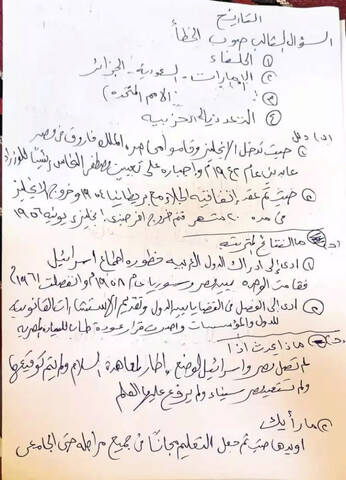 التاريخ
السؤال الثالث صوب الخطأ
① الحلفاء
② الإمارات - السعودية - الجزائر
③ (الأمم المتحدة)
④ التعددية الحزبية
(ب) دلل
① حيث تدخل الإنجليز وقاموا محاصرة الملك فاروق فى قصر
عابدين عام ١٩٤٢م وإجباره على تعيين مصطفى النحاس رئيسًا للوزراء
② حيث تم عقد اتفاقية الجلاء مع بريطانيا ١٩٥٤ وخروج الإنجليز
فى مده ٢٠ شهر فتم خروج آخر جندى إنجليزى يونيه ١٩٥٦
ما النتائج المترتبه
① أدى إلى ادراك الدول العربيه خطوره اطماع اسرائيل
فقامت الوحده بين مصر وسوريا عام ١٩٥٨م وانفصلت ١٩٦١م
② أدى إلى الفصل فى القضايا بين الدول وتقديم الاستشارات القانونية
للدول والمؤسسات واصدرت قرار عودة طابا للسياده المصريه
ماذا يحدث اذا
لم تصل مصر واسرائيل لوضع إطار لمعاهدة السلام ولم يتم توقيعها
ولم تستعيد مصر سيناء ولم يرفع عليها العلم
ما رأيك
اؤيدها حيث تم جعل التعليم مجانًا فى جميع مراحله حتى الجامعى